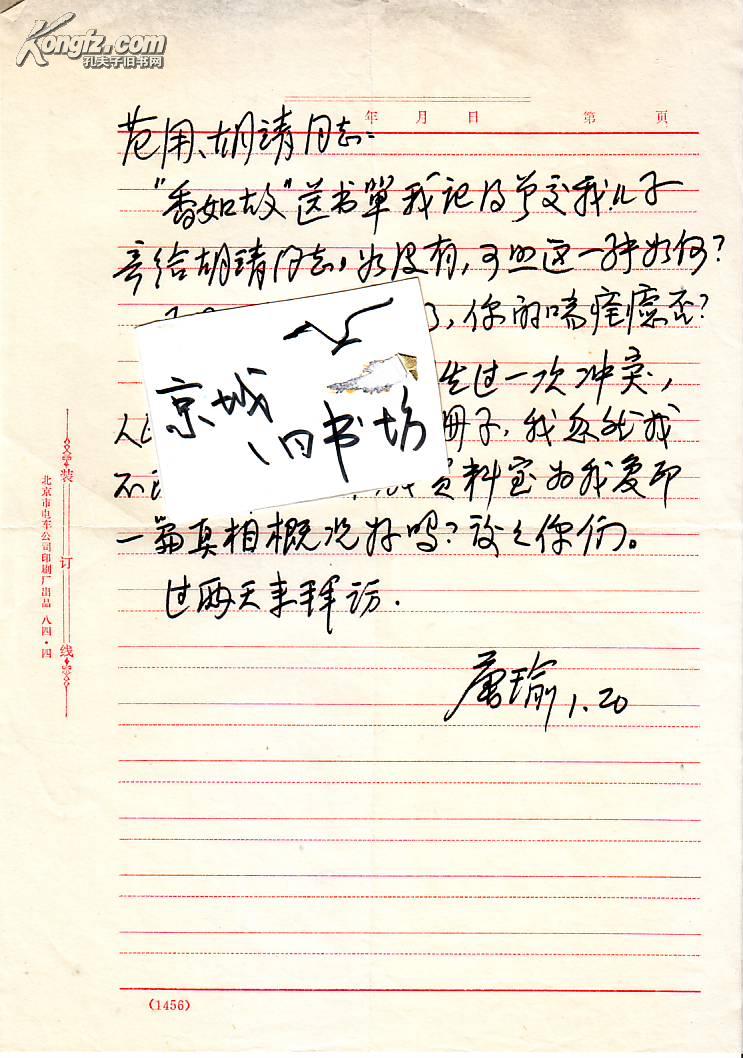 Kongfz.com
孔夫子旧书网
年 月 日 第 页
范用、胡靖同志：
"香如故"送书单我记得曾交我儿子
寄给胡靖同志，如没有，可照这一张如何？
，你的喘痊癒否？
生过一次冲突，
人 册子，我忽然找
不 资料室为我复印
一篇真相概况好吗？谢之你们。
过两天来拜访.
唐瑜 1.20
京城
旧书坊
装 订 线
北京市电车公司印刷厂出品 八四·四
(1456)